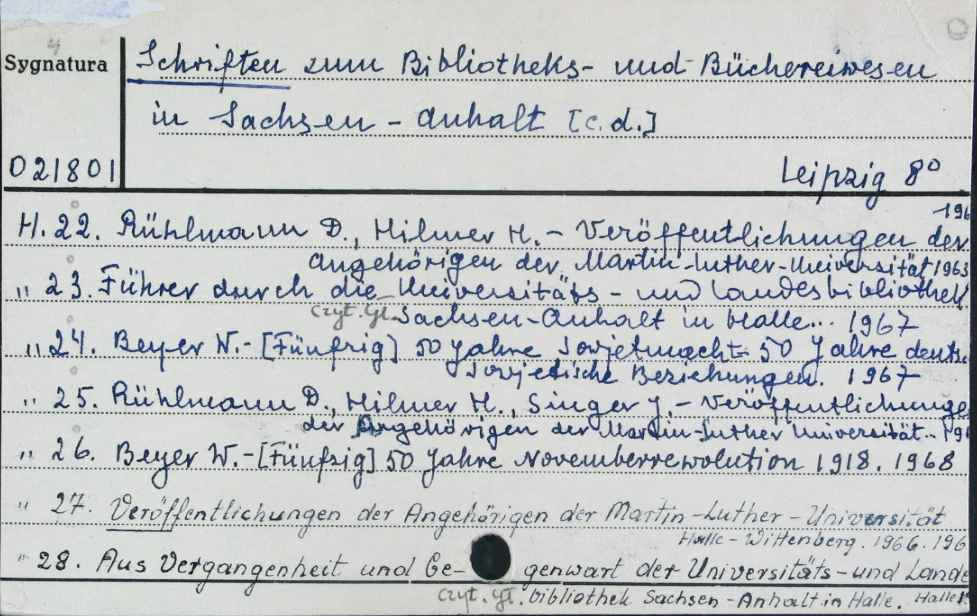 4
Sygnatura
Schriften zum Bibliotheks- und Büchereiwesen
in Sachsen-Anhalt [c.d.]
021801
Leipzig 8°
H. 22. Rühlmann D., Hilmer H. - Veröffentlichungen der
Angehörigen der Martin-Luther-Universität 1963
" 23. Führer durch die Universitäts- und Landesbibliothek
Czyt. Gł. Sachsen-Anhalt in Halle... 1967
" 24. Beyer W. - [Fünfzig] 50 Jahre Sowjetmacht - 50 Jahre deuts
Sowjetische Beziehungen. 1967
" 25. Rühlmann D., Hilmer H., Singer J. - Veröffentlichunge
der Angehörigen der Martin-Luther Universität...
" 26. Beyer W. - [Fünfzig] 50 Jahre Novemberrewolution 1918. 1968
" 27. Veröffentlichungen der Angehörigen der Martin-Luther-Universität
Halle-Wittenberg. 1966. 196
" 28. Aus Vergangenheit und Ge- genwart der Universitäts- und Lande
Czyt. Gł. bibliothek Sachsen-Anhalt in Halle. Halle